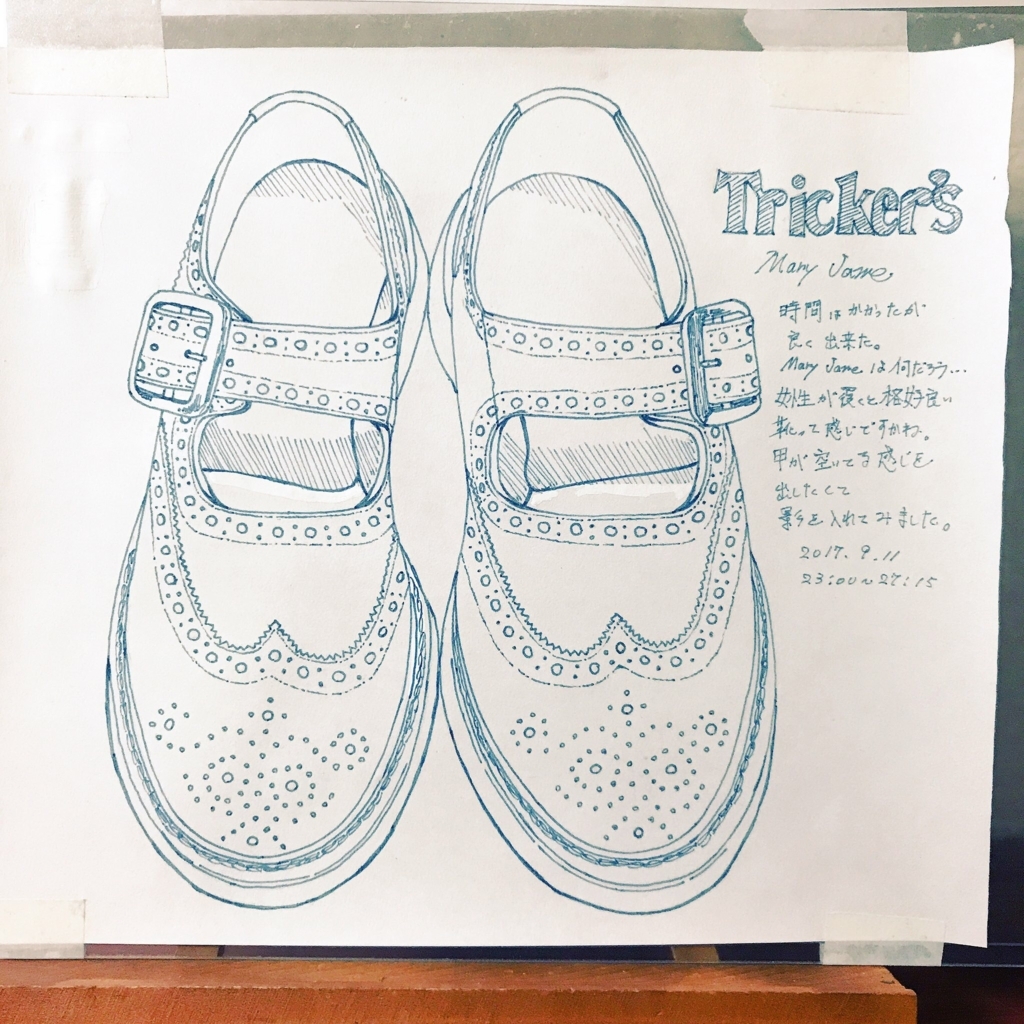 Tricker's
Mary Jane
時間はかかったが
良く出来た。
Mary Jane は何だろう...
女性が履くと格好良い
靴って感じですかね。
甲が空いてる感じを
出したくて
影を入れてみました。
2017.9.11
23:00~27:15